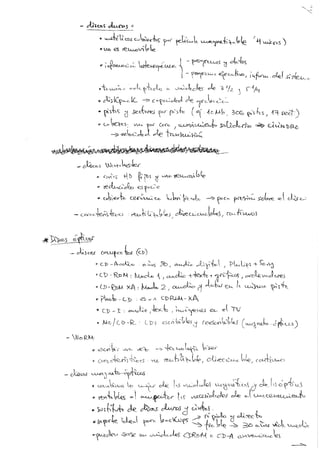 - discos duros =
• metálicos cubiertos por película magnetizable (4 micras)
• no es removible
• información heterogénea { - programas y datos
- programas ejecutivos, inform. del sistema
unidades de 3 1/2 y 5 1/4
• diskpack → capacidad de
• pistas y sectores por pista (ej 10 Mb, 306 pistas, 17 sect)
• cabezas: una por cara, movimiento solidario → CILINDRO
→ velocidad de transmisión
- discos Winchester
• HD fijos y no removibles
• reducido espacio
• cubierta lubricada → poca presión sobre el disco
- características reutilizables, direccionables, continuos
* Discos ópticos
- discos compactos (CD)
• CD-Audio años 80, audio digital, Philips + Sony
• CD-ROM: Modo 1, audio + texto + gráficos, ordenadores
• CD-ROM XA: Modo 2, audio y datos en la misma pista
• Photo-CD CDROM-XA
• CD-I: audio, texto, imágenes en el TV
• MO/CD-R: CDs escribibles y reescribibles (magneto-ópticos)
- WORM
• escribir una vez → tecnología láser
• características no reutilizable, direccionable, continuo
- discos magneto-ópticos
• combina lo mejor de las unidades magnéticas y de las ópticas
• las necesidades de almacenamiento
• sustituto de discos duros y cintas
• soporte ideal para backups → rápido y directo
→ fiable → 30 años vida media
• pueden unidades CDROM o CD-A